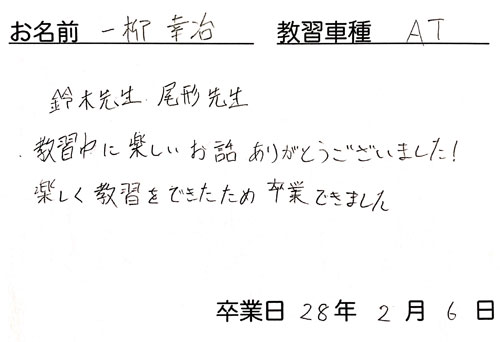 お名前 一柳 幸治 教習車種 AT
鈴木先生、尾形先生
教習中に楽しいお話ありがとうございました!
楽しく教習をできたため卒業できました
卒業日 28年 2月 6日